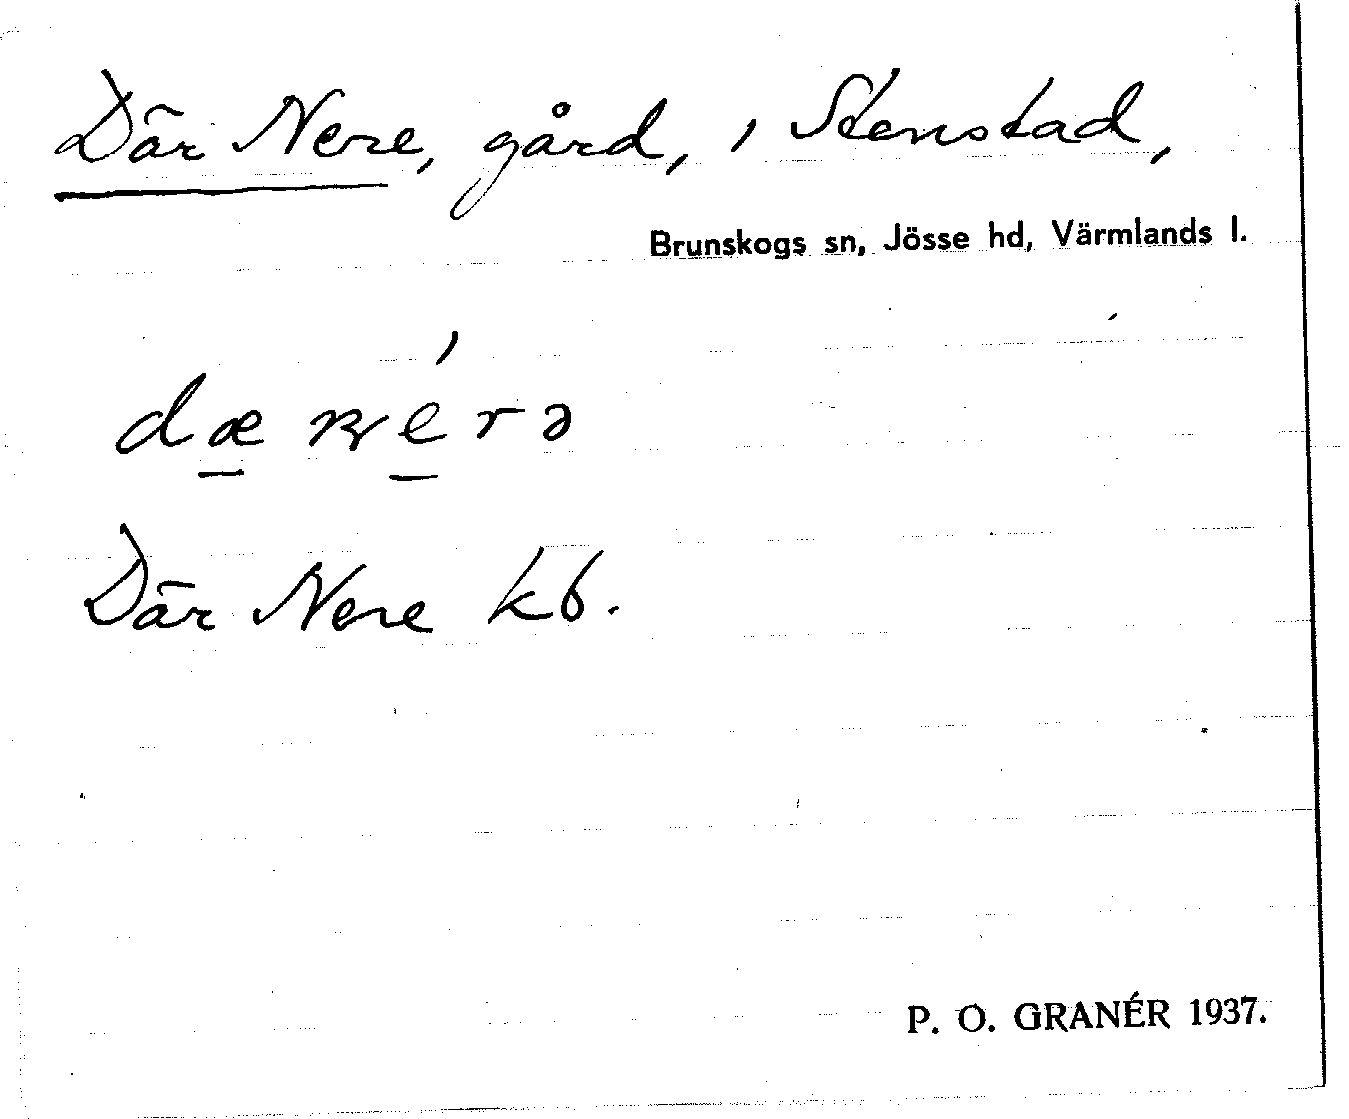 Där Nere, gård, i Stenstad,
Brunskogs sn, Jösse hd, Värmlands l.
Där Nere kb.
P. O. GRANÉR 1937.